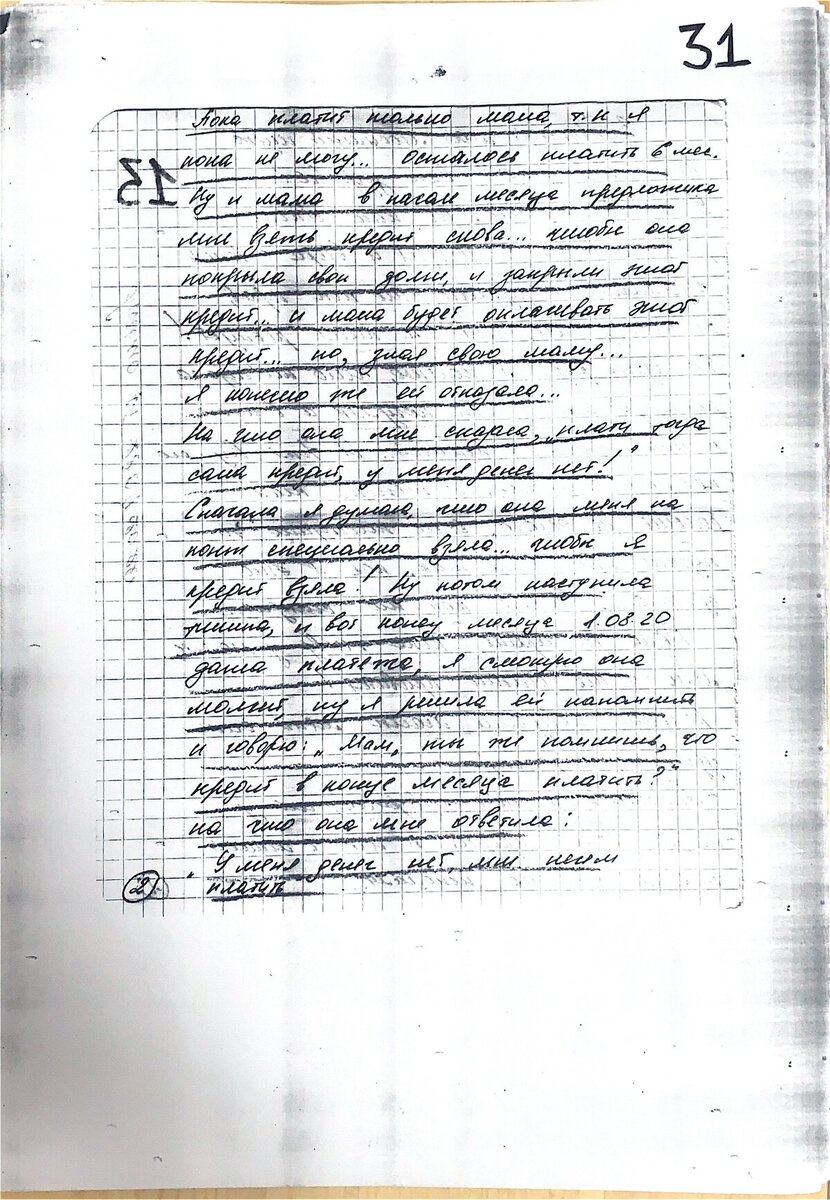 31
Пока платит только мама, т.к я
пока не могу... осталось платить 6 мес.
13
Ну и мама в начале месяца предложила
мне взять кредит снова... чтобы она
покрыла свои долги, и закрыли этот
кредит... и мама будет оплачивать этот
кредит... но, зная свою маму...
Я конечно же ей отказала...
На что она мне сказала, „плати тогда
сама кредит, у меня денег нет!"
Сначала я думаю, что она меня на
понт специально взяла... чтобы я
кредит взяла! Ну потом наступила
тишина, и вот концу месяца 1.08.20
дата платежа, я смотрю она
молчит, ну я решила ей напомнить
и говорю: „Мам, ты же помнишь, что
кредит в конце месяца платить?"
на что она мне ответила:
„У меня денег нет, мне нечем
платить
2